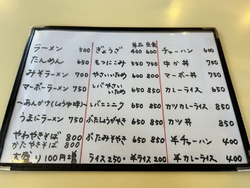 ラーメン 500
たんめん 650
みそラーメン 700
マーボーラーメン 750
うまにラーメン 750
やわやきそば 800
かたやきそば 800
大盛り100円増
単品 定食
ぎょうざ 400 600
もつにこみ 500 700
やさいいため 600 800
レバやさいいため 650 850
レバニンニク 650 850
ぶたしょうがやき 650 850
ぶたみそやき 650 850
ライス 250・半ライス 200
チャーハン 600
中か丼 700
マーボー丼 700
カレーライス 650
カツカレーライス 850
カツライス 850
半チャーハン 400
半カレーライス 400